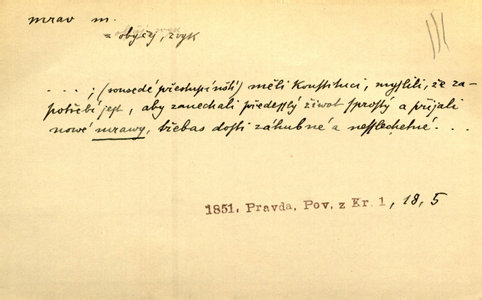 mrav m.
= obyčej, zvyk
. . . ; (sousedé přestupínští) měli Konstituci, myslili, že za-
potřebí jest, aby zanechali předešlý žiwot sprostý a přijali
nowé mrawy, třebas dosti záhubné a nešlechetné. . . .
1851. Pravda, Pov. z Kr. 1, 18, 5